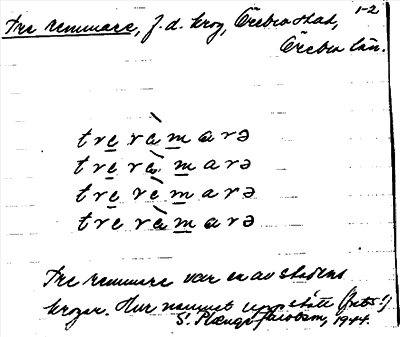 1-2
Tre remmare, f.d. krog, Örebro stad,
Örebro län.
tre rèmarə
tre rèmarə
tre rèmarə
tre rèmarə
Tre remmare var en av stadens
krogar. Hur namnet uppstått
S. Jacobson, 1944.